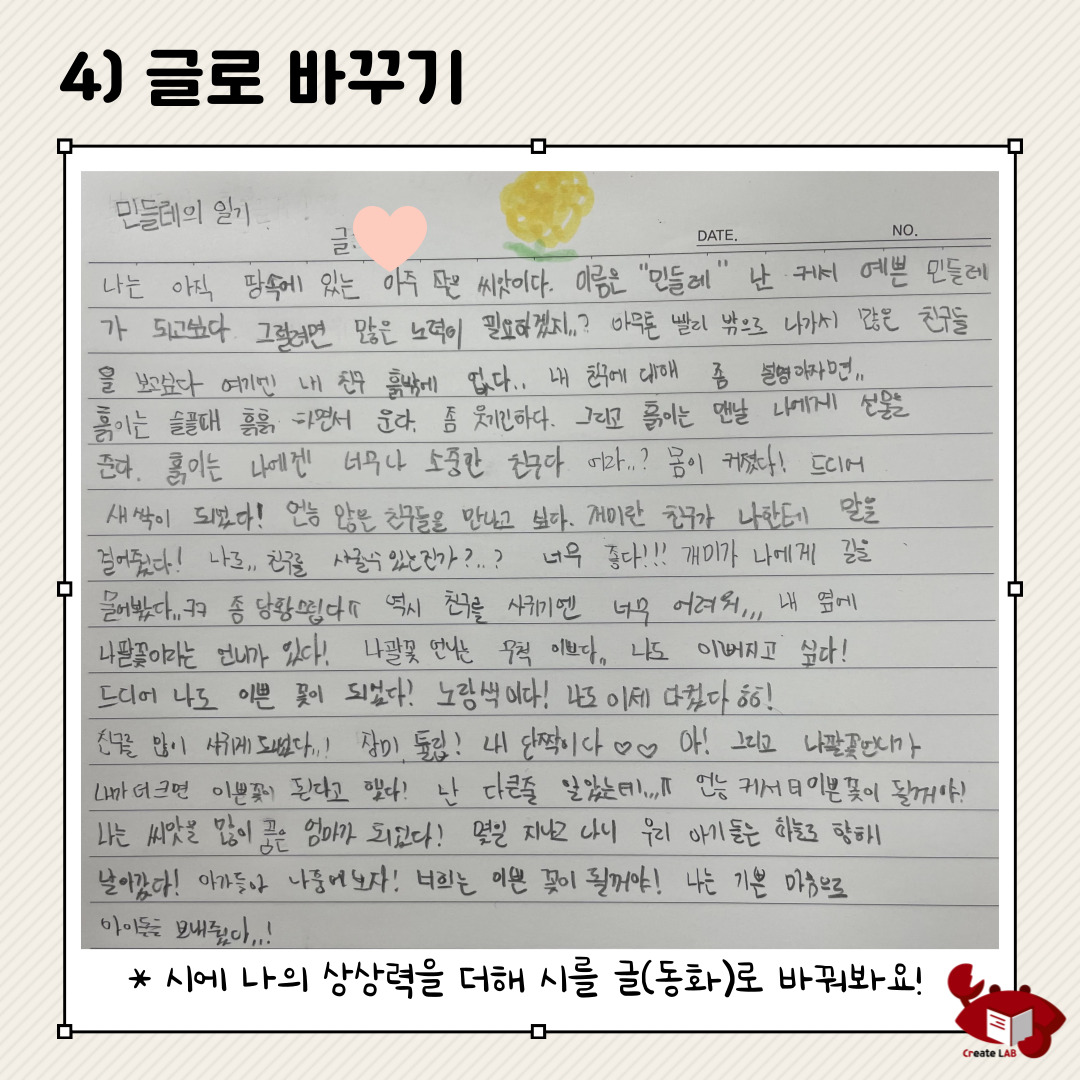 4) 글로 바꾸기
민들레의 일기
글:
DATE.
NO.
나는 아직 땅속에 있는 아주 작은 씨앗이다. 이름은 "민들레" 난 커서 예쁜 민들레
가 되고싶다. 그럴려면 많은 노력이 필요하겠지..? 아무튼 빨리 밖으로 나가서 많은 친구들
을 보고싶다 여기엔 내 친구 흙밖에 없다.. 내 친구에 대해 좀 설명하자면..
흙이는 슬플때 흙흙 하면서 운다. 좀 웃기긴하다. 그리고 흙이는 맨날 나에게 선물을
준다. 흙이는 나에겐 너무나 소중한 친구다 어라..? 몸이 커졌다! 드디어
새싹이 되었다! 언능 많은 친구들을 만나고 싶다. 개미란 친구가 나한테 말을
걸어줬다! 나도.. 친구를 사귈수있는건가?..? 너무 좋다!!! 개미가 나에게 길을
물어봤다..ㅋㅋ 좀 당황스럽다ㅠ 역시 친구를 사귀기엔 너무 어려워... 내 옆에
나팔꽃이라는 언니가 있다! 나팔꽃 언니는 무척 이쁘다.. 나도 이뻐지고 싶다!
드디어 나도 이쁜 꽃이 되었다! 노랑색이다! 나도 이제 다컸다 ㅎㅎ!
친구를 많이 사귀게되었다..! 장미, 튤립! 내 단짝이다 ♡♡ 아! 그리고 나팔꽃언니가
내가 더 크면 이쁜꽃이 된다고 했다! 난 다큰줄 알았는데...ㅠ 언능 커서 더 이쁜꽃이 될꺼야!
나는 씨앗을 많이 품은 엄마가 되었다! 몇일 지나고 나니 우리 아기들은 하늘로 향해
날아갔다! 아가들아 나중에보자! 너희는 이쁜 꽃이 될꺼야! 나는 기쁜 마음으로
아이들을 보내줬다..!
* 시에 나의 상상력을 더해 시를 글(동화)로 바꿔봐요!
Create LAB